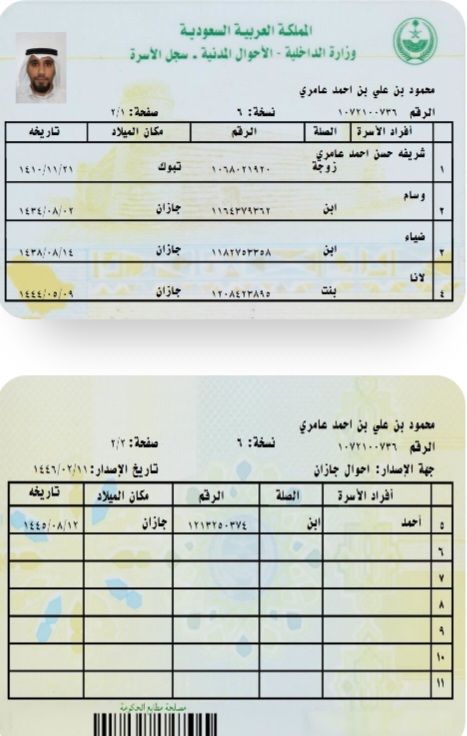 المملكة العربية السعودية
وزارة الداخلية - الأحوال المدنية - سجل الأسرة
محمود بن علي بن احمد عامري
الرقم ١٠٧٢١٠٠٧٣٦ نسخة: ٦ صفحة: ٢/١
أفراد الأسرة الصلة الرقم مكان الميلاد تاريخه
١ شريفه حسن احمد عامري زوجة ١٠٦٨٠٢١٩٢٠ تبوك ١٤١٠/١١/٢١
٢ وسام ابن ١١٦٤٣٧٩٣٦٢ جازان ١٤٣٤/٠٨/٠٢
٣ ضياء ابن ١١٨٢٧٥٣٣٥٨ جازان ١٤٣٨/٠٨/١٤
٤ لانا بنت ١٢٠٨٤٢٣٨٩٥ جازان ١٤٤٤/٠٥/٠٩
محمود بن علي بن احمد عامري
الرقم ١٠٧٢١٠٠٧٣٦ نسخة: ٦ صفحة: ٢/٢
جهة الإصدار: احوال جازان تاريخ الإصدار: ١٤٤٦/٠٢/١١
أفراد الأسرة الصلة الرقم مكان الميلاد تاريخه
٥ أحمد ابن ١٢١٣٢٥٠٣٧٤ جازان ١٤٤٥/٠٨/١٢
٦
٧
٨
٩
١٠
١١
مصلحة مطابع الحكومة